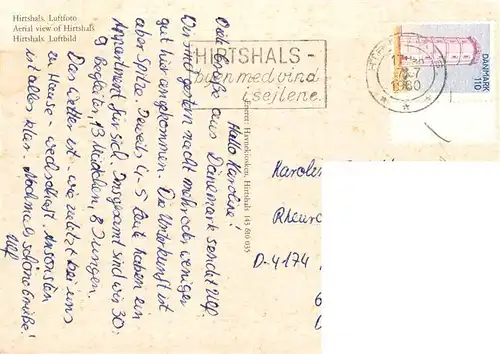 Hirtshals, Luftfoto
Aerial view of Hirtshals
Hirtshals, Luftbild
HIRTSHALS -
byen med vind
i sejlene.
17
7
1980
DANMARK
110
Eneret: Havnekiosken, Hirtshals 143 610 035
Hallo Karoline!
Viele Grüße aus Dänemark sendet Ulf.
Wir sind gestern nacht mehr oder weniger
gut hier angekommen. Die Unterkunft ist
aber Spitze. Jeweils 4-5 Leut haben ein
Appartment für sich. Insgesamt sind wir 30:
9 Begleiter, 13 Mädchen, 8 Jungen.
Das Wetter ist - wie zuletzt bei uns
zu Hause - wechselhaft. Ansonsten
ist alles klar. Nochmals schöne Grüße!
Ulf
Karolin
Rheur
D-4174